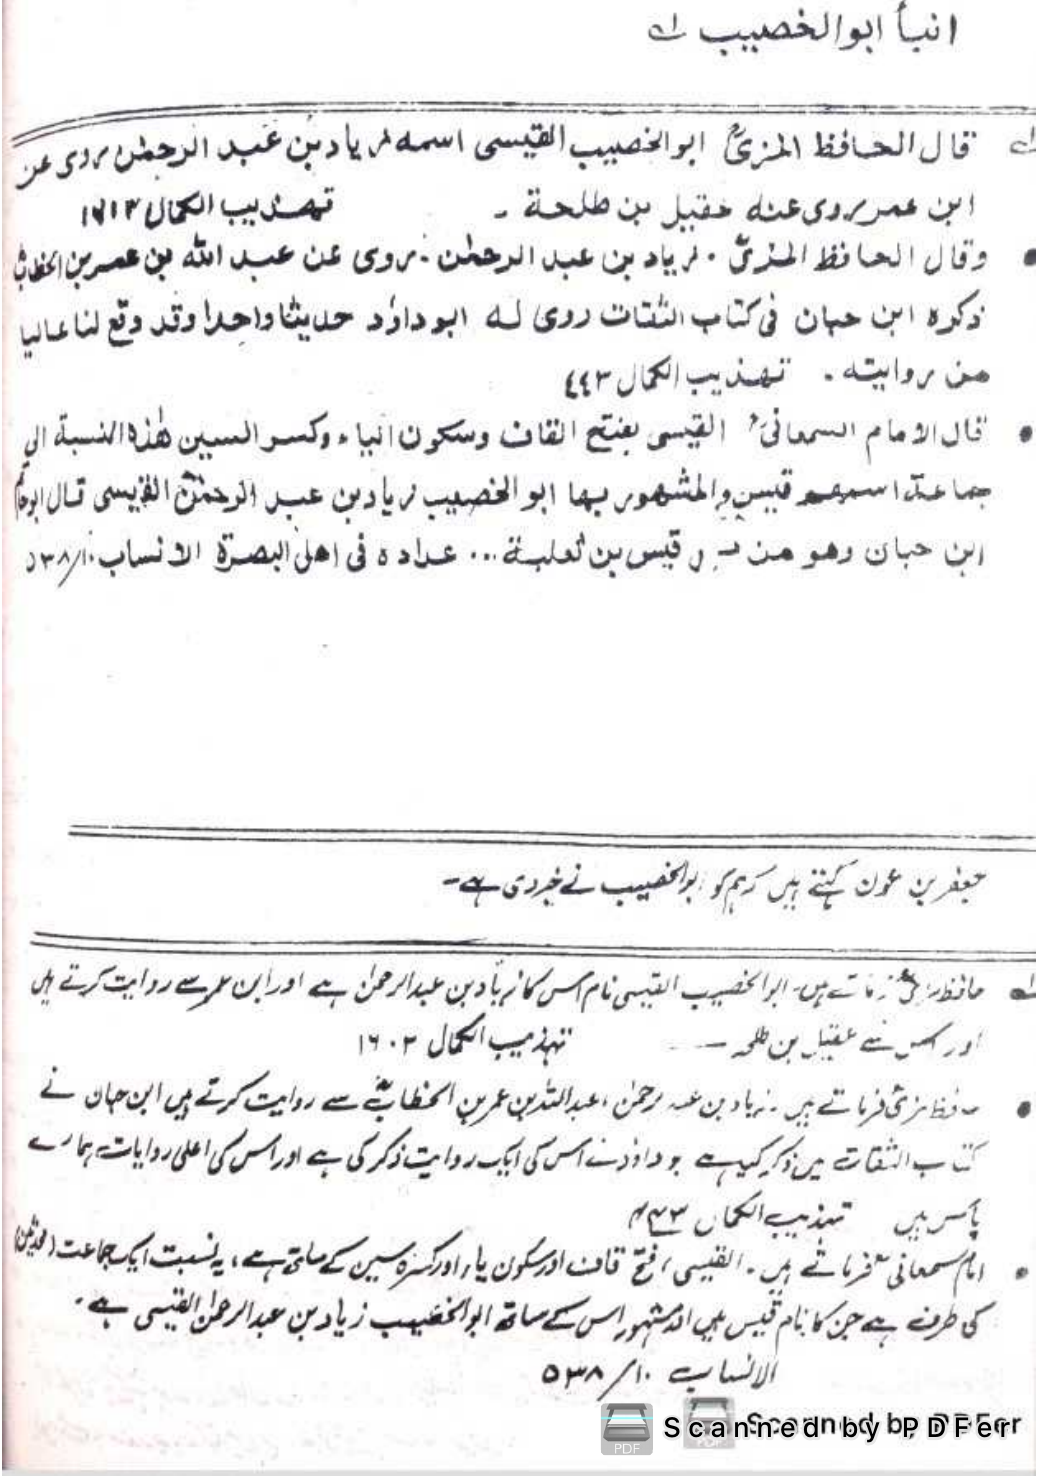 انبأ ابوالخصیب ؂۱
؂۱ قال الحافظ المزیؒ ابوالخصیب القیسی اسمه زیاد بن عبد الرحمٰن یروی عن
ابن عمر یروی عنه عقیل بن طلحة ۔ تهذیب الکمال ۱۶۱۳
• وقال الحافظ المزیؒ . زیاد بن عبد الرحمٰن . یروی عن عبد اللّٰه بن عمر بن الخطابؓ
ذکره ابن حبان فی کتاب الثقات روی له ابوداؤد حدیثا واحدا وقد وقع لنا عالیا
من روایته . تهذیب الکمال ٤٤٣
• قال الامام السمعانیؒ القیسی بفتح القاف وسکون الیاء وکسر السین هٰذه النسبة الی
جماعة اسمهم قیس والمشهور بها ابو الخصیب زیاد بن عبد الرحمٰن القیسی قال ابوحاتم
ابن حبان وهو من قیس بن ثعلبة ... عداده فی اهل البصرة الانساب ۱۰/۵۳۸
جعفر بن عون کہتے ہیں کہ ہم کو ابوالخصیب نے خبر دی ہے۔
؂۱ حافظ مزیؒ فرماتے ہیں۔ ابوالخصیب القیسی نام اس کا زیاد بن عبدالرحمٰن ہے اور ابن عمر سے روایت کرتے ہیں
اور اس سے عقیل بن طلحہ ۔ تہذیب الکمال ۱۶۰۳
• حافظ مزیؒ فرماتے ہیں ۔ زیاد بن عبد الرحمٰن ، عبداللہ بن عمر بن الخطابؓ سے روایت کرتے ہیں ابن حبان نے
کتاب الثقات میں ذکر کیا ہے ابوداؤد نے اس کی ایک روایت ذکر کی ہے اور اس کی اعلیٰ روایات ہمارے
پاس ہیں تہذیب الکمال ۴۴۳
• امام سمعانیؒ فرماتے ہیں۔ القیسی ، فتح قاف اور سکون یاء اور کسرہ سین کے ساتھ ہے ، یہ نسبت ایک جماعت (محدثین)
کی طرف ہے جن کا نام قیس ہیں اور مشہور اس کے ساتھ ابوالخصیب زیاد بن عبدالرحمٰن القیسی ہے۔
الانساب ۱۰/۵۳۸
Scanned by PDFer
Scanned by PDFer